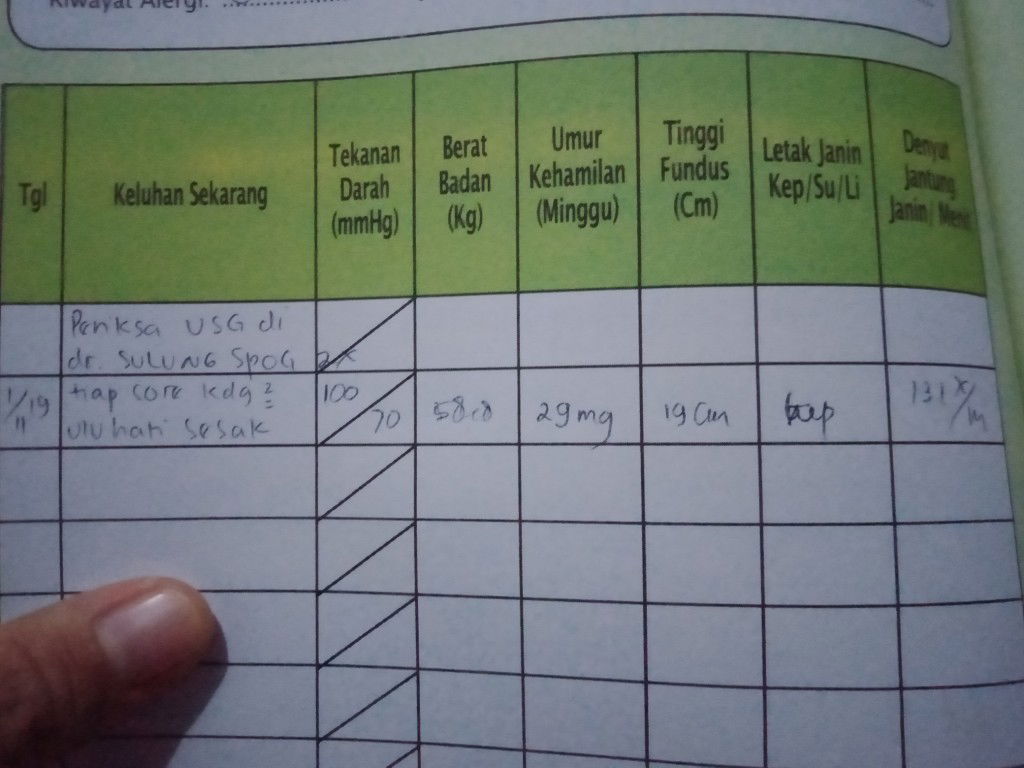 Riwayat Alergi:
Tgl
Keluhan Sekarang
Tekanan
Darah
(mmHg)
Berat
Badan
(Kg)
Umur
Kehamilan
(Minggu)
Tinggi
Fundus
(Cm)
Letak Janin
Kep/Su/Li
Denyut
Jantung
Janin/ Menit
Periksa USG di
dr. SULUNG SpOG 2x
1/11 19
tiap sore kdg2
ulu hati sesak
100
70
29 mg
19 cm
kep
131 x/m